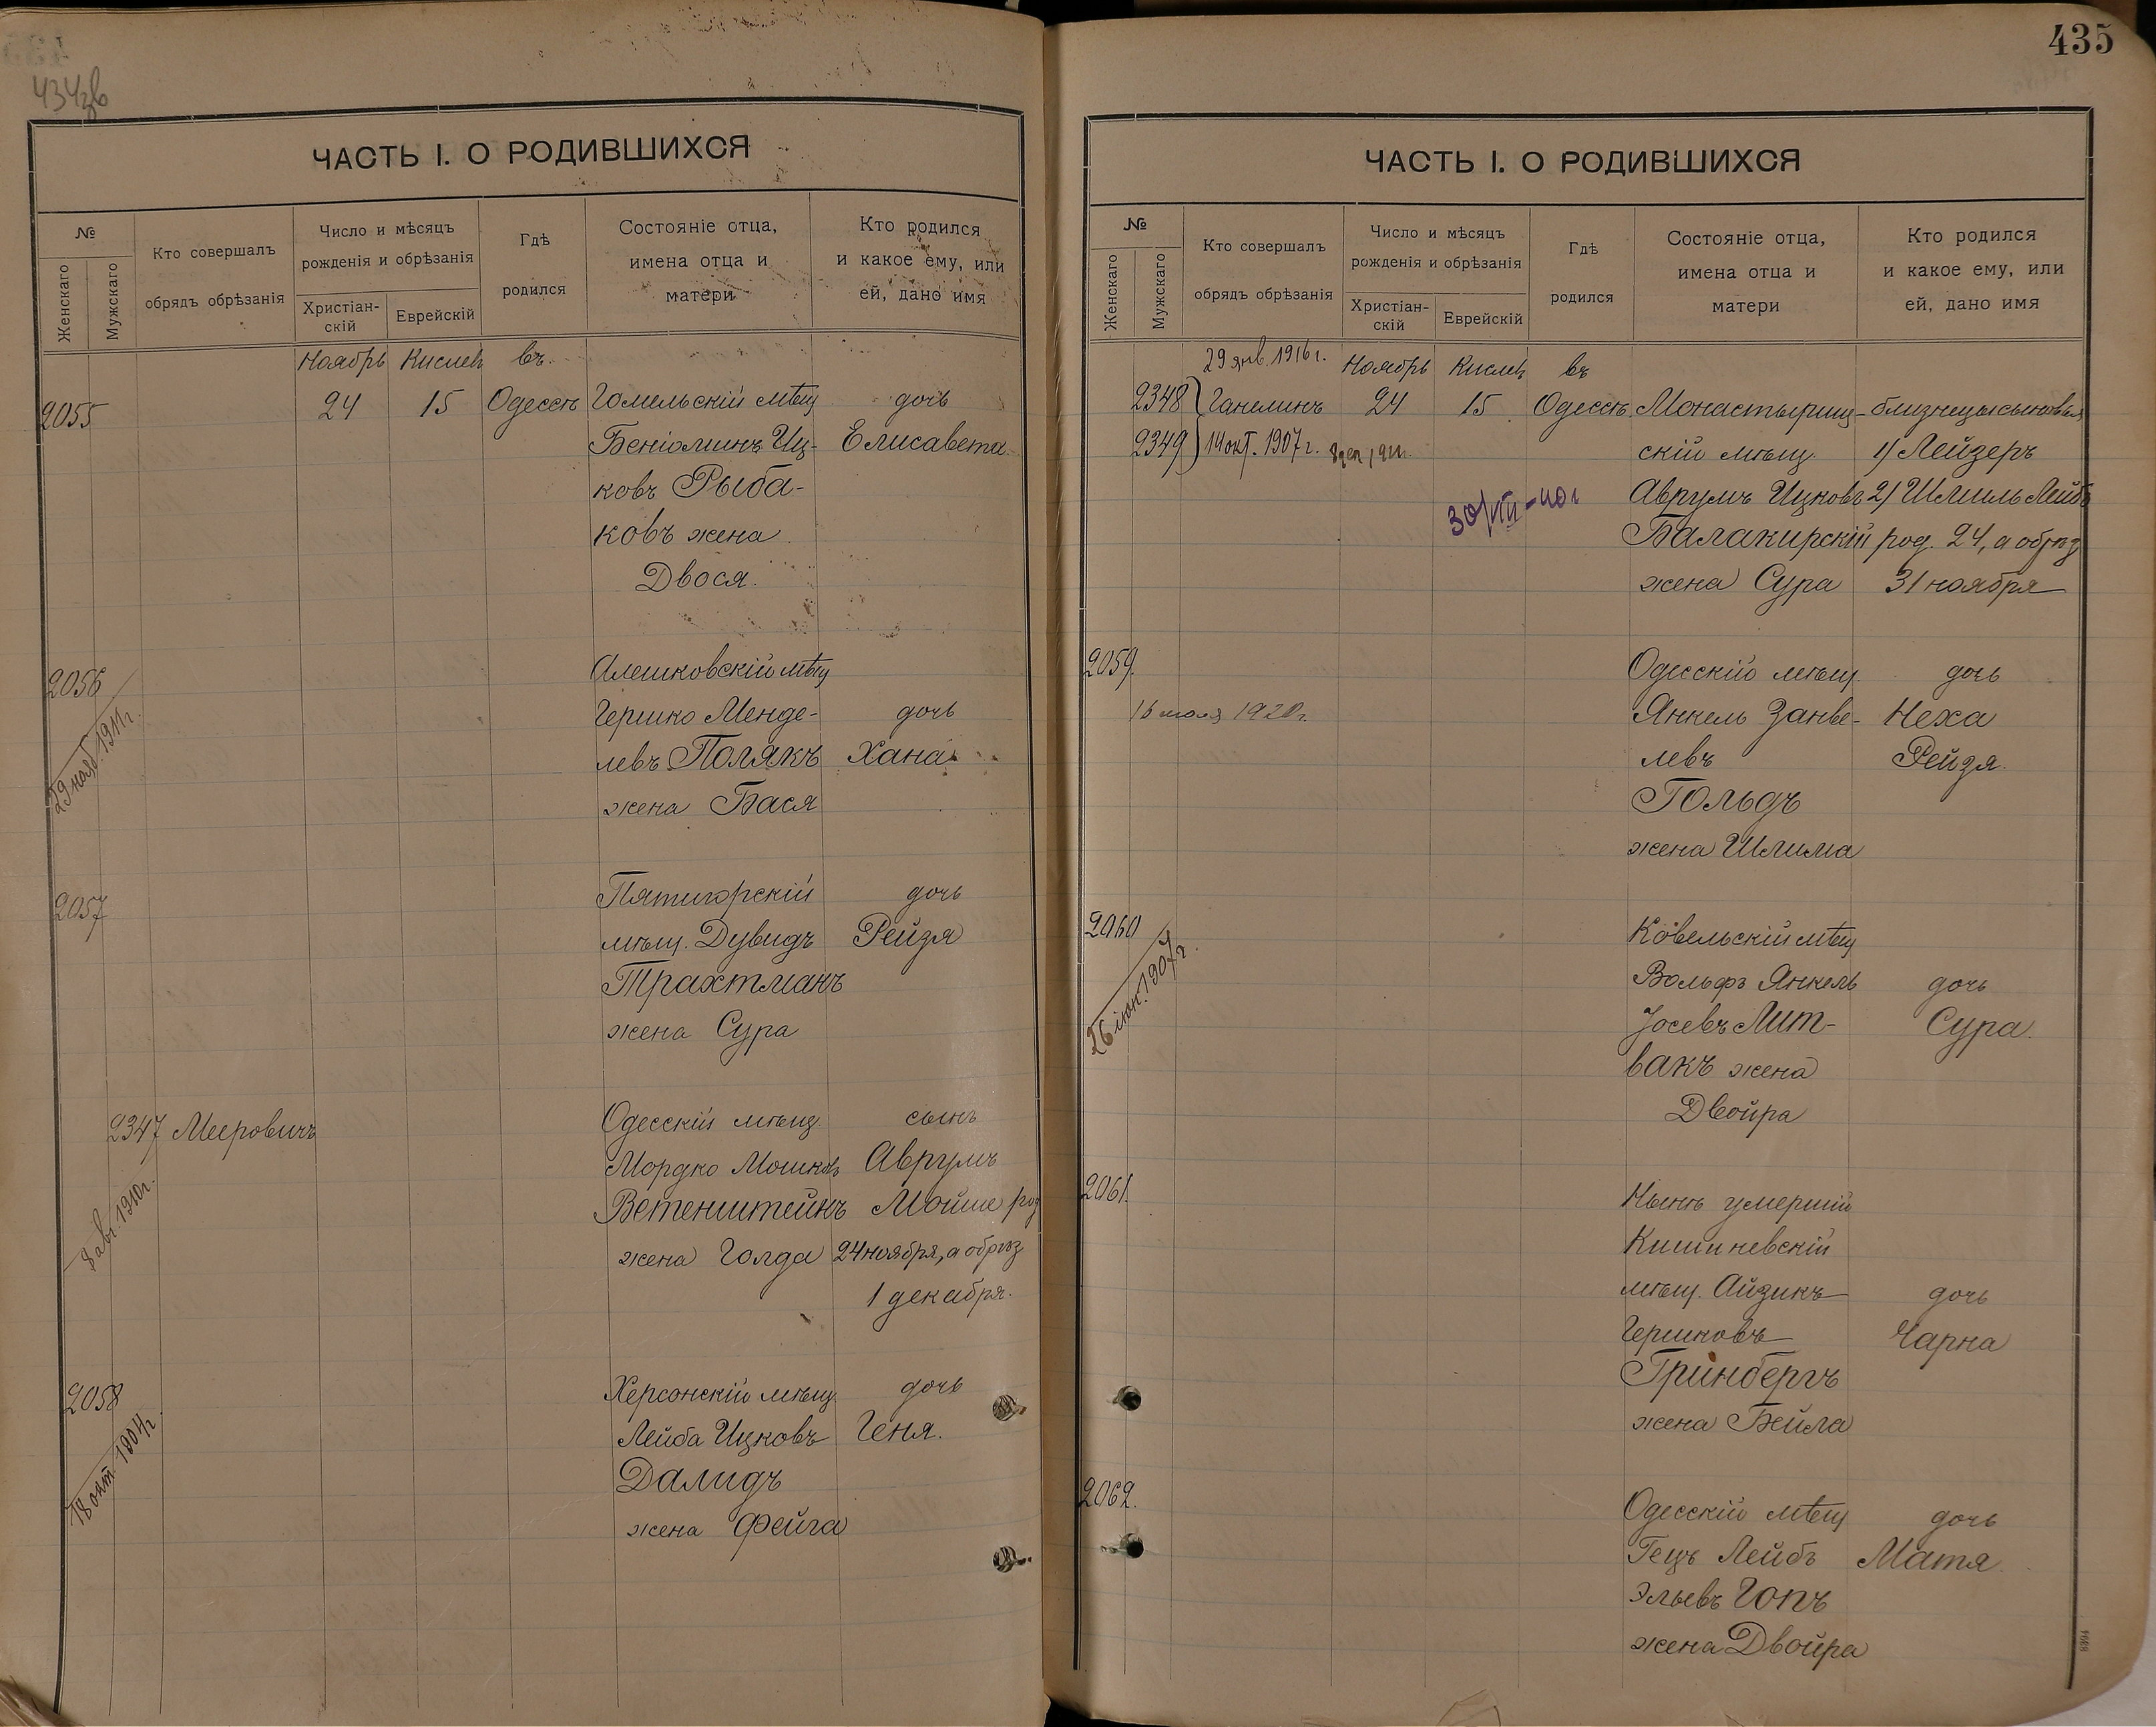 434зв
ЧАСТЬ I. О РОДИВШИХСЯ
№
Женскаго
Мужскаго
Кто совершалъ
обрядъ обрѣзанія
Число и мѣсяцъ
рожденія и обрѣзанія
Христіан-
скій
Еврейскій
Гдѣ
родился
Состояніе отца,
имена отца и
матери
Кто родился
и какое ему, или
ей, дано имя
Ноябрь Кислев въ
2055 24 15 Одессѣ Гомельскій мѣщ дочь
Беніоминъ Иц- Елисавета
ковъ Рыба-
ковъ жена
Двося.
2056 Алешковскій мѣщ
29 нояб. 1911г.
Гершко Менде- дочь
левъ Полякъ Хана
жена Бася
2057 Пятигорскій дочь
мѣщ. Дувидъ Рейзя
Трахтманъ
жена Сура
2347 Мееровичъ Одесскій мѣщ. сынъ
8 авг. 1910г.
Мордко Мошковъ Аврумъ
Ветенштейнъ Мойше род
жена Голда 24 ноября, а обрѣз
1 декабря.
2058 Херсонскій мѣщ. дочь
18 окт. 1904г
Лейба Ицковъ Геня.
Далидъ
жена Фейга
435
ЧАСТЬ I. О РОДИВШИХСЯ
№
Женскаго
Мужскаго
Кто совершалъ
обрядъ обрѣзанія
Число и мѣсяцъ
рожденія и обрѣзанія
Христіан-
скій
Еврейскій
Гдѣ
родился
Состояніе отца,
имена отца и
матери
Кто родился
и какое ему, или
ей, дано имя
29 янв. 1916г. Ноябрь Кислев въ
2348 Ганелинъ 24 15 Одессѣ Монастырищ- близнецы сыновья
2349 14 окт. 1907г. скій мѣщ. 1/ Лейзеръ
Аврумъ Ицковъ 2/ Шмиль Лейбъ
30/III-40г
Балакирскій род. 24, а обрѣз
жена Сура 31 ноября
2059. Одесскій мѣщ. дочь
16 июля 1920г. Янкель Занве- Неха
левъ Рейзя.
Гольдъ
жена Шлима
2060 Ковельскій мѣщ
26 іюн. 1907г.
Вольфъ Янкель дочь
Іосевъ Лит- Сура.
вакъ жена
Двойра
2061. Нынѣ умершій
Кишиневскій
мѣщ. Айзикъ дочь
Гершковъ Чарна
Гринбергъ
жена Бейла
2062. Одесскій мѣщ дочь
Гецъ Лейбъ Матя
Эльевъ Гопъ
жена Двойра